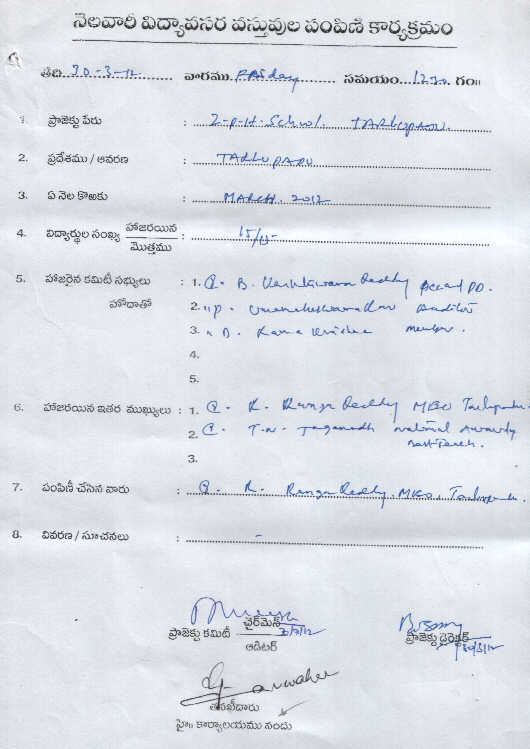 నెలవారీ విద్యావసర వస్తువుల పంపిణి కార్యక్రమం
తేది 30-3-12 వారము Friday సమయం 12-30 గం॥
1. ప్రాజెక్టు పేరు : Z-P-H- School. TARLUPADU.
2. ప్రదేశము / ఆవరణ : TARLUPADU
3. ఏ నెల కొఱకు : MARCH. 2012
4. విద్యార్థుల సంఖ్య హాజరయిన / మొత్తము : 15/15
5. హాజరైన కమిటీ సభ్యులు : 1. B. Venkteswara Reddy PD.
హోదాతో 2. " P. Umamaheswara Rao Auditor
3. " D. Rama Krishna member.
4.
5.
6. హాజరయిన ఇతర ముఖ్యులు : 1. R. Ranga Reddy MEO Tarlupadu
2. T.N. Jaganadh National Awardy
3.
7. పంపిణీ చేసిన వారు : R. Ranga Reddy, MEO, Tarlupadu.
8. వివరణ / సూచనలు : -
ప్రాజెక్టు కమిటీ చైర్‌మెన్ 30/3/12
ఆడిటర్
ప్రాజెక్టు డైరెక్టర్ 30/3/12
తనఖీదారు
హై॥ కార్యాలయము నందు